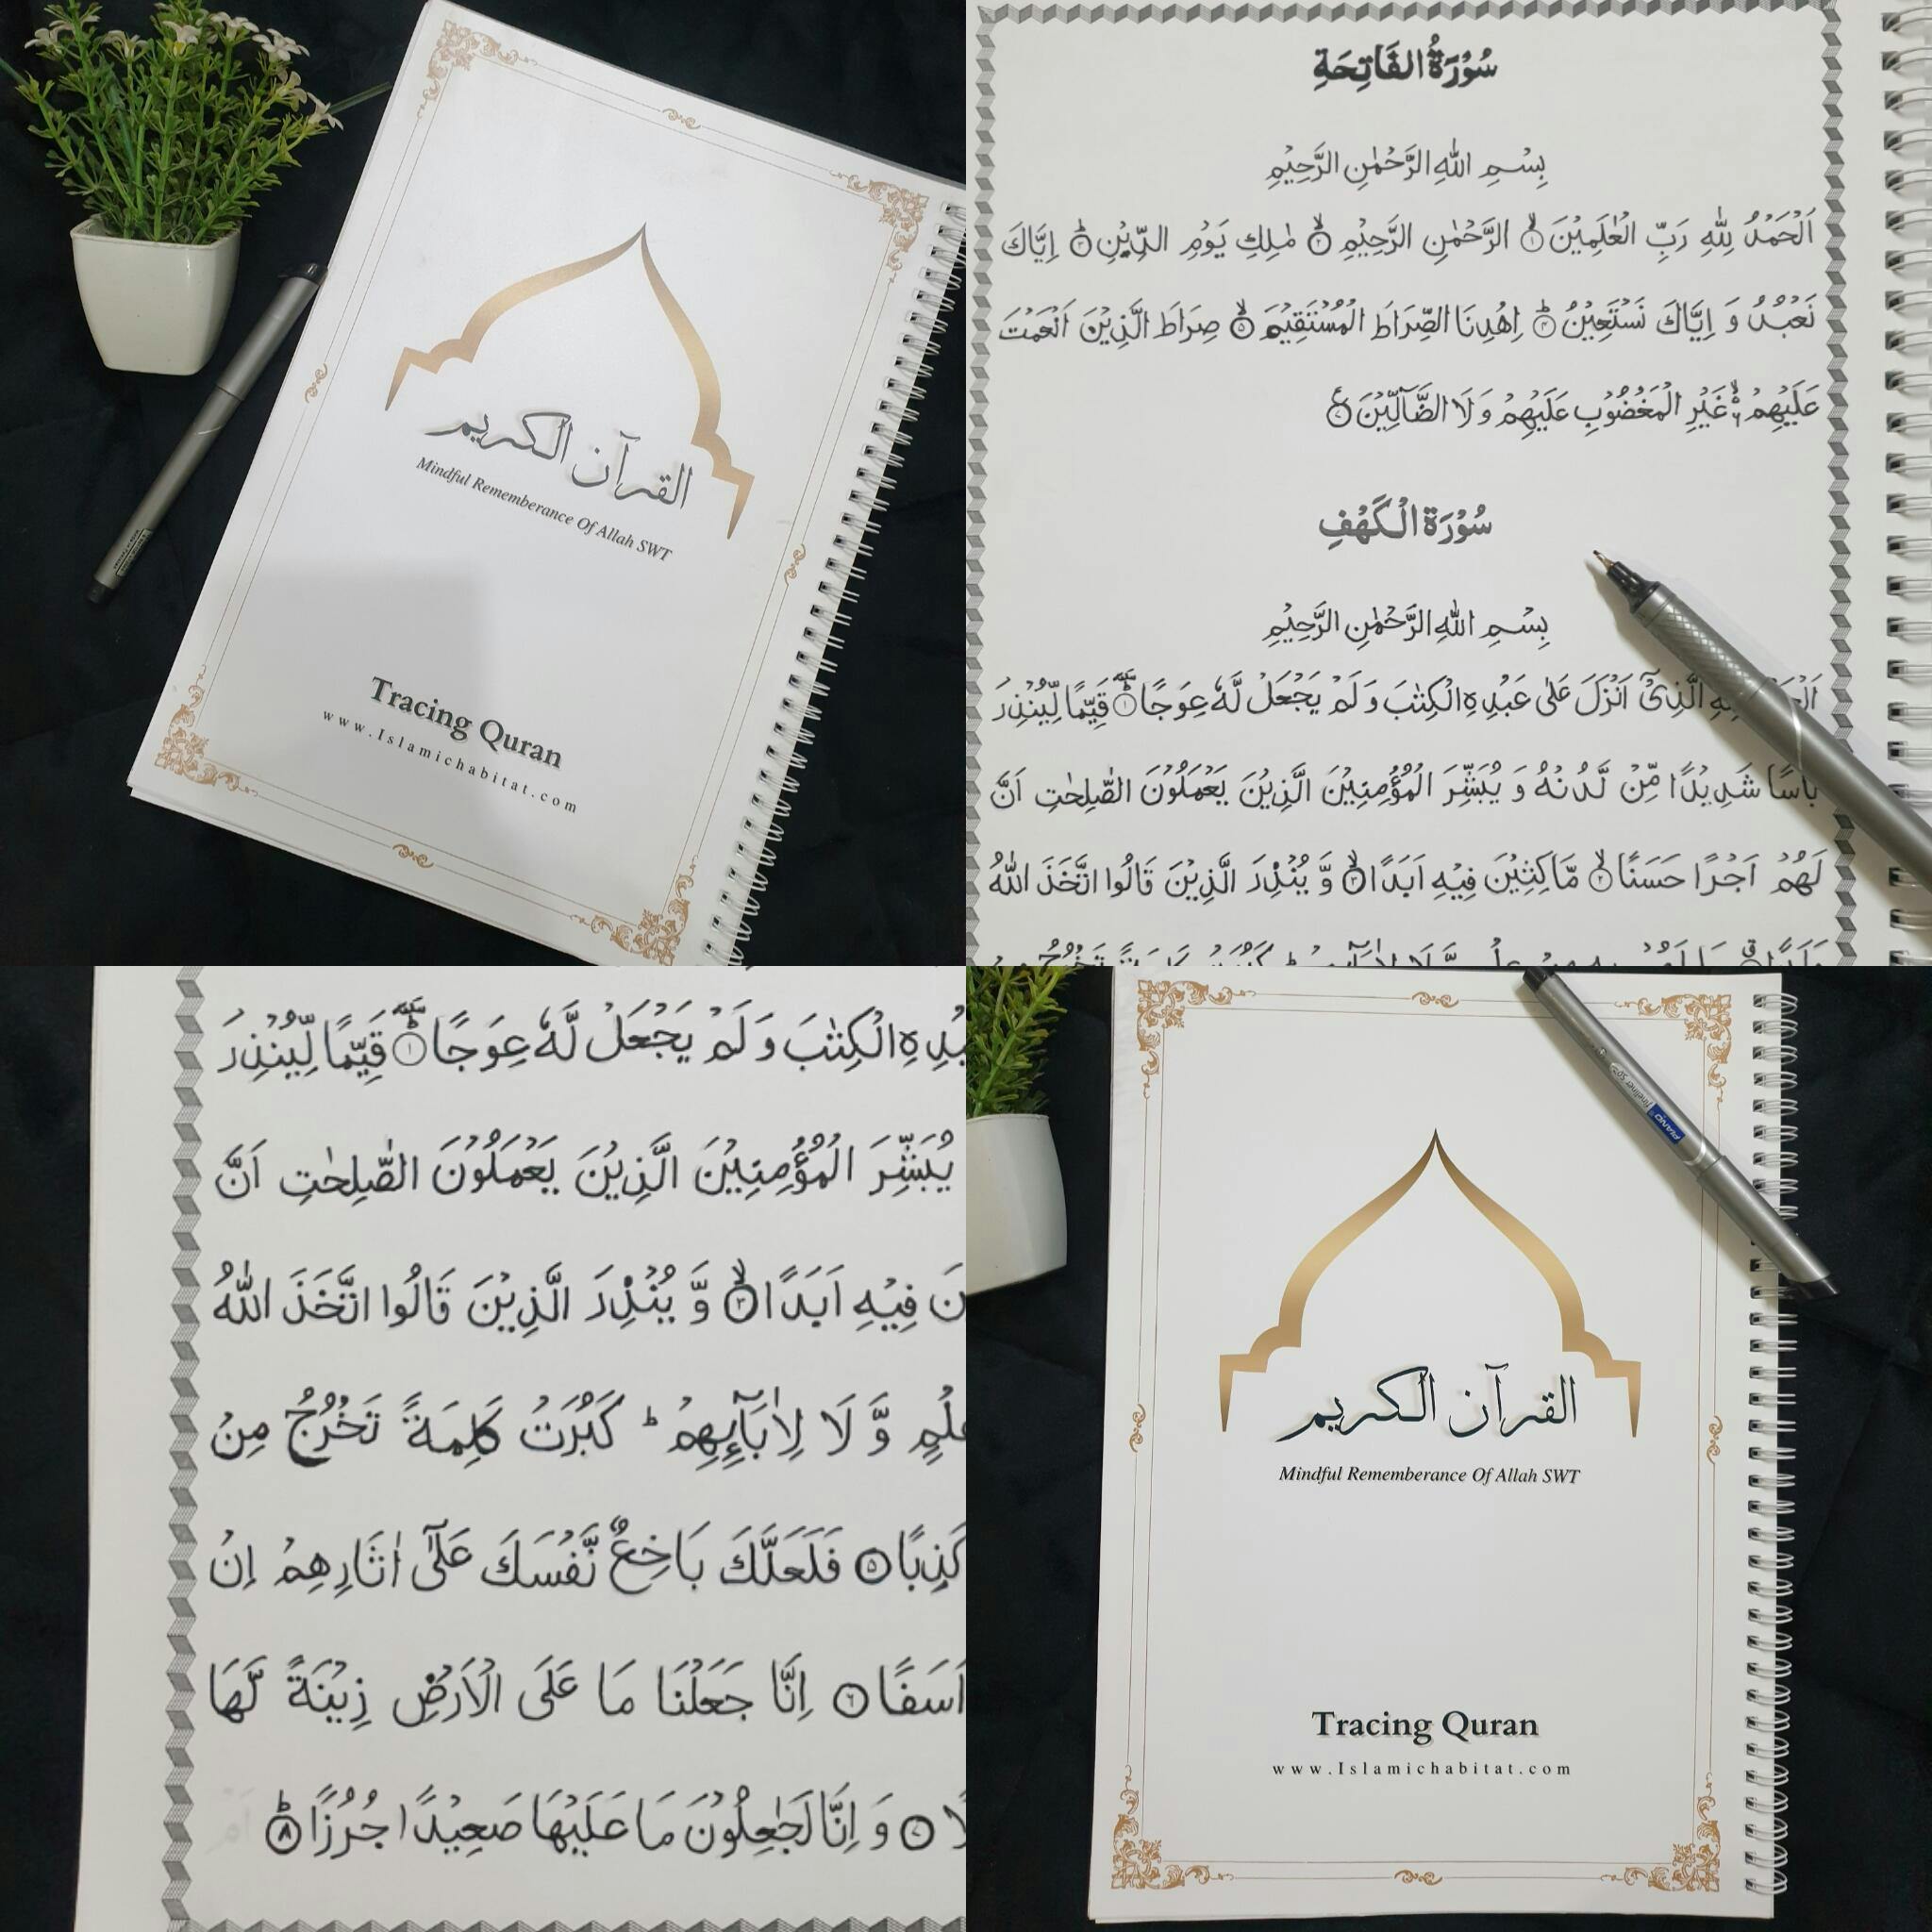 القرآن الكريم
Mindful Rememberance Of Allah SWT
Tracing Quran
www.Islamichabitat.com
سُوْرَةُ الفَاتِحَةِ
بِسْمِ اللّٰهِ الرَّحْمٰنِ الرَّحِيْمِ
اَلْحَمْدُ لِلّٰهِ رَبِّ الْعٰلَمِيْنَ ۙ﴿۱﴾ الرَّحْمٰنِ الرَّحِيْمِ ۙ﴿۲﴾ مٰلِكِ يَوْمِ الدِّيْنِ ؕ﴿۳﴾ اِيَّاكَ
نَعْبُدُ وَ اِيَّاكَ نَسْتَعِيْنُ ؕ﴿۴﴾ اِهْدِنَا الصِّرَاطَ الْمُسْتَقِيْمَ ۙ﴿۵﴾ صِرَاطَ الَّذِيْنَ اَنْعَمْتَ
عَلَيْهِمْ ۙ۬ۦ غَيْرِ الْمَغْضُوْبِ عَلَيْهِمْ وَ لَا الضَّآلِّيْنَ ﴿۷﴾
سُوْرَةُ الْكَهْفِ
بِسْمِ اللّٰهِ الرَّحْمٰنِ الرَّحِيْمِ
الَّذِيْۤ اَنْزَلَ عَلٰى عَبْدِهِ الْكِتٰبَ وَ لَمْ يَجْعَلْ لَّهٗ عِوَجًا ؕ﴿۱﴾ قَيِّمًا لِّيُنْذِرَ
بَاْسًا شَدِيْدًا مِّنْ لَّدُنْهُ وَ يُبَشِّرَ الْمُؤْمِنِيْنَ الَّذِيْنَ يَعْمَلُوْنَ الصّٰلِحٰتِ اَنَّ
لَهُمْ اَجْرًا حَسَنًا ۙ﴿۲﴾ مَّاكِثِيْنَ فِيْهِ اَبَدًا ۙ﴿۳﴾ وَّ يُنْذِرَ الَّذِيْنَ قَالُوا اتَّخَذَ اللّٰهُ
الْكِتٰبَ وَ لَمْ يَجْعَلْ لَّهٗ عِوَجًا ؕ﴿۱﴾ قَيِّمًا لِّيُنْذِرَ
يُبَشِّرَ الْمُؤْمِنِيْنَ الَّذِيْنَ يَعْمَلُوْنَ الصّٰلِحٰتِ اَنَّ
فِيْهِ اَبَدًا ۙ﴿۳﴾ وَّ يُنْذِرَ الَّذِيْنَ قَالُوا اتَّخَذَ اللّٰهُ
وَّ لَا لِاٰبَآئِهِمْ ؕ كَبُرَتْ كَلِمَةً تَخْرُجُ مِنْ
كَذِبًا ﴿۵﴾ فَلَعَلَّكَ بَاخِعٌ نَّفْسَكَ عَلٰۤى اٰثَارِهِمْ اِنْ
اَسَفًا ﴿۶﴾ اِنَّا جَعَلْنَا مَا عَلَى الْاَرْضِ زِيْنَةً لَّهَا
﴿۷﴾ وَ اِنَّا لَجٰعِلُوْنَ مَا عَلَيْهَا صَعِيْدًا جُرُزًا ؕ﴿۸﴾
القرآن الكريم
Mindful Rememberance Of Allah SWT
Tracing Quran
www.Islamichabitat.com
PIANO
Fineliner